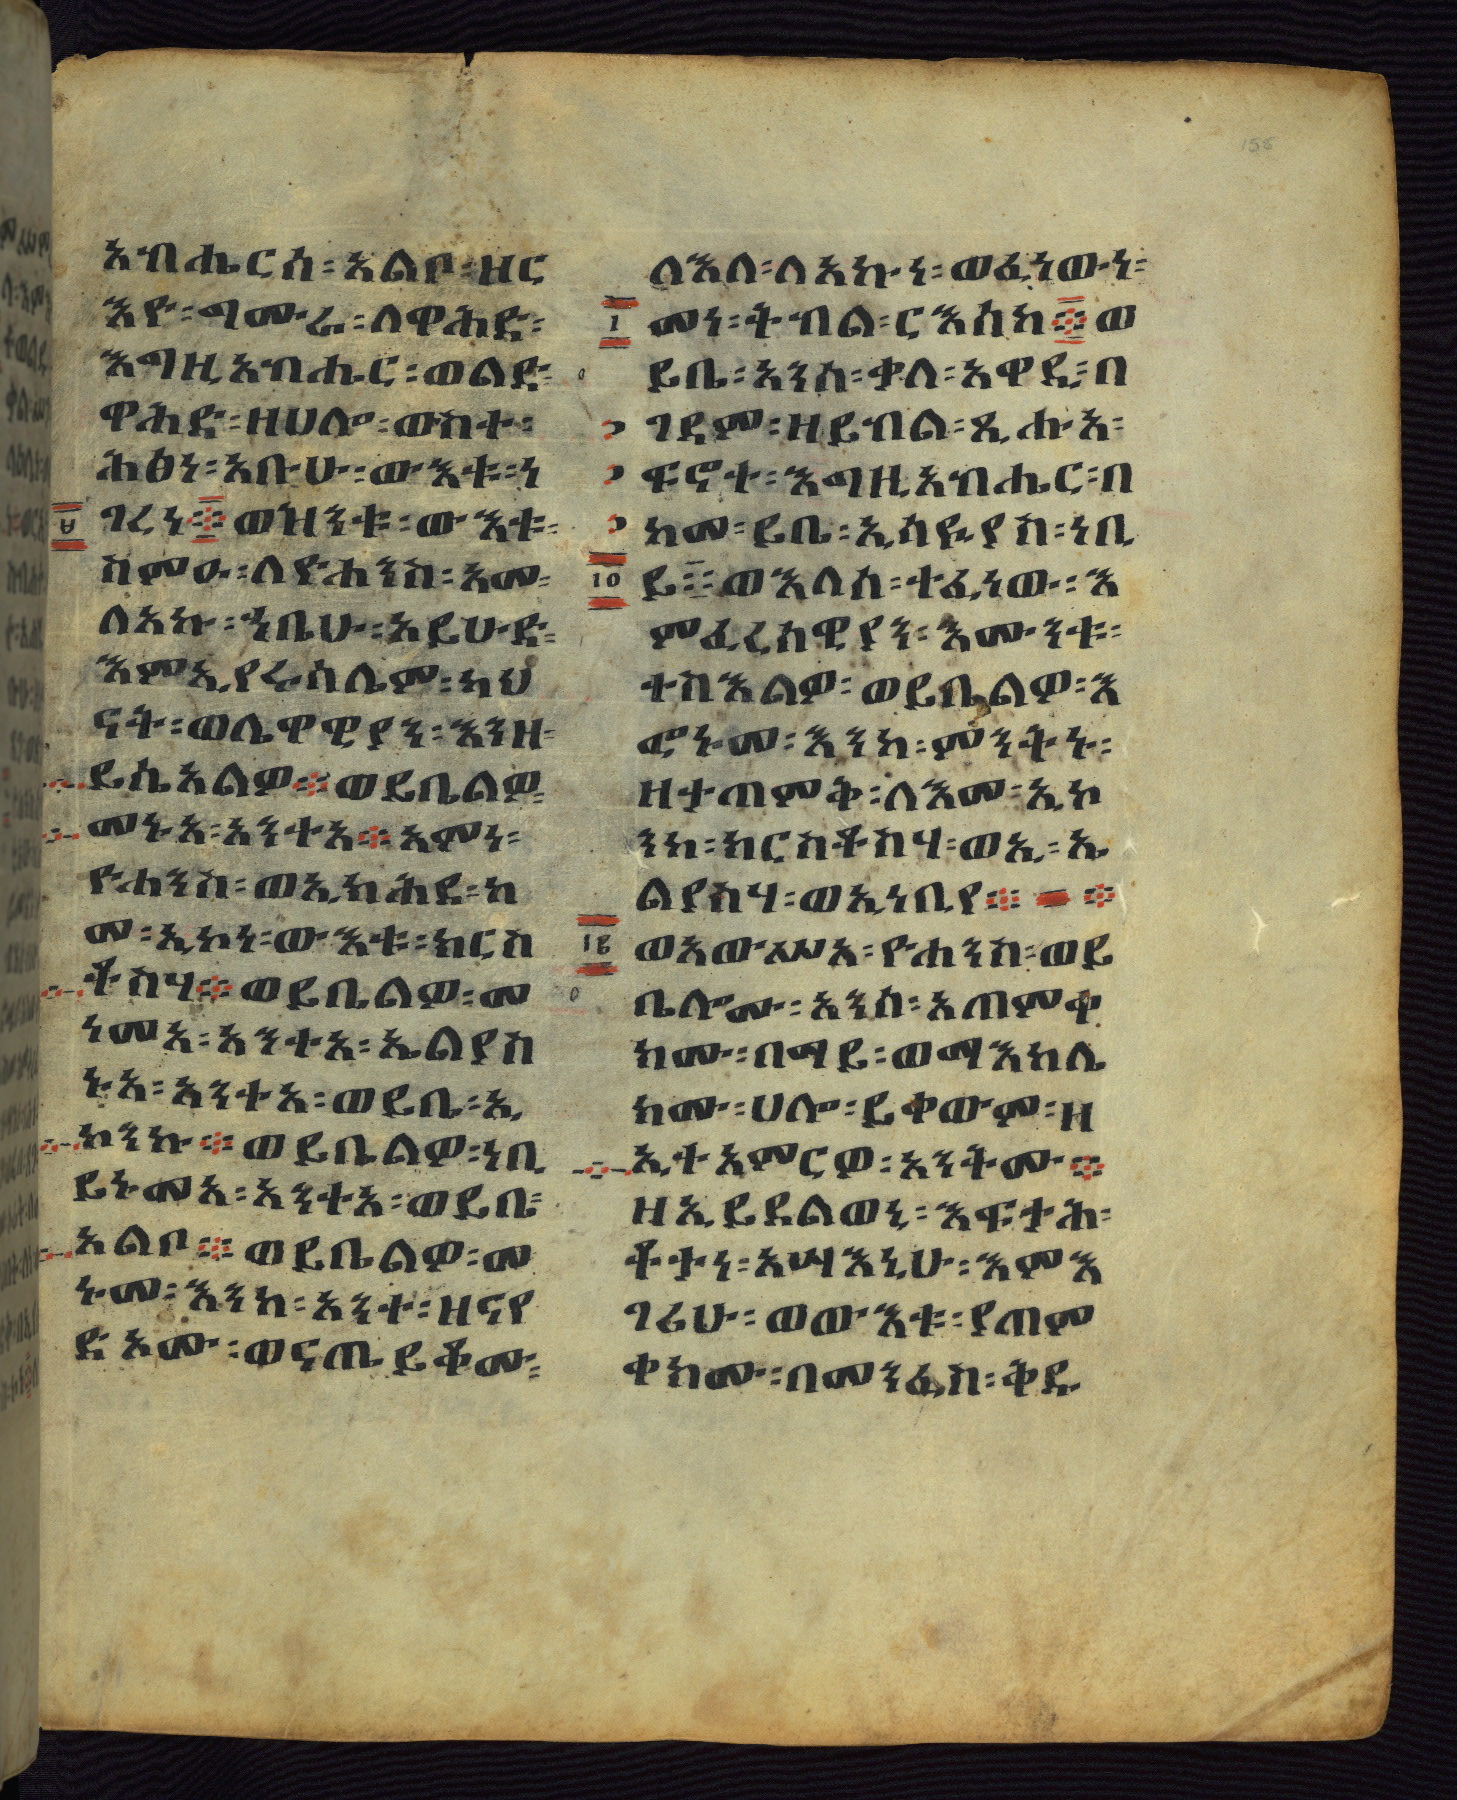 እግብሔርሰ፡አልቦ፡ዘር
እዮ፡ግሙራ፡ለዋሕድ፡
እግዚአብሔር፡ወልድ፡
ዋሕድ፡ዘሀሎ፡ውስተ፡
ሕፅነ፡አቡሁ፡ውእቱ፡ነ
ገረነ፨ወዝንቱ፡ውእቱ፡
ስምዑ፡ለዮሐንስ፡አመ፡
ለአኩ፡ኀቤሁ፡አይሁድ፡
እምኢየሩሳሌም፡ካህ
ናት፡ወሌዋዊያን፡እንዘ፡
ይሴአልዎ፨ወይቤልዎ፡
መኑአ፡አንተአ፨አምነ፡
ዮሐንስ፡ወኢክሕደ፡ከ
መ፡ኢኮነ፡ውእቱ፡ክርስ
ቶስሃ፨ወይቤልዎ፡መ
ነመአ፡አንተአ፡ኤልያስ
ኑአ፡አንተአ፡ወይቤ፡ኢ
ኮንኩ፨ወይቤልዎ፡ነቢ
ይኑመአ፡አንተአ፡ወይቤ፡
አልቦ፨ወይቤልዎ፡መ
ኑመ፡እንከ፡አንተ፡ዘናየ
ድአሙ፡ወናጤይቆሙ፡
ለእለ፡ለአኩነ፡ወፈነውነ፡
፲
መነ፡ትብል፡ርእሰከ፨ወ
ይቤ፡አንሰ፡ቃለ፡አዋዲ፡በ
ገዳም፡ዘይብል፡ጺሑአ፡
ፍኖተ፡እግዚአብሔር፡በ
ከመ፡ይቤ፡ኢሳይያስ፡ነቢ
፲፩
ይ፨ወእለሰ፡ተፈነው፡እ
ምፈሪሳዊያን፡እሙንቱ፡
ተስእልዎ፡ወይቤልዎ፡እ
ፎኑመ፡እንከ፡ምንትኑ፡
ዘታጠምቅ፡ለእመ፡ኢኮ
ንከ፡ክርስቶስሃ፡ወኢ፡ኤ
ልያስሃ፡ወኢነቢየ፨ ፨
፲፪
ወአውሥአ፡ዮሐንስ፡ወይ
ቤሎሙ፡አንሰ፡አጠምቀ
ክሙ፡በማይ፡ወማእከሌ
ክሙ፡ሀሎ፡ይቀውም፡ዘ
ኢተአምርዎ፡አንትሙ፨
ዘኢይደልወኒ፡እፍታሕ፡
ቶታነ፡አሣእኒሁ፡እምእ
ገሪሁ፡ወውእቱ፡ያጠም
ቀክሙ፡በመንፈስ፡ቅዱ